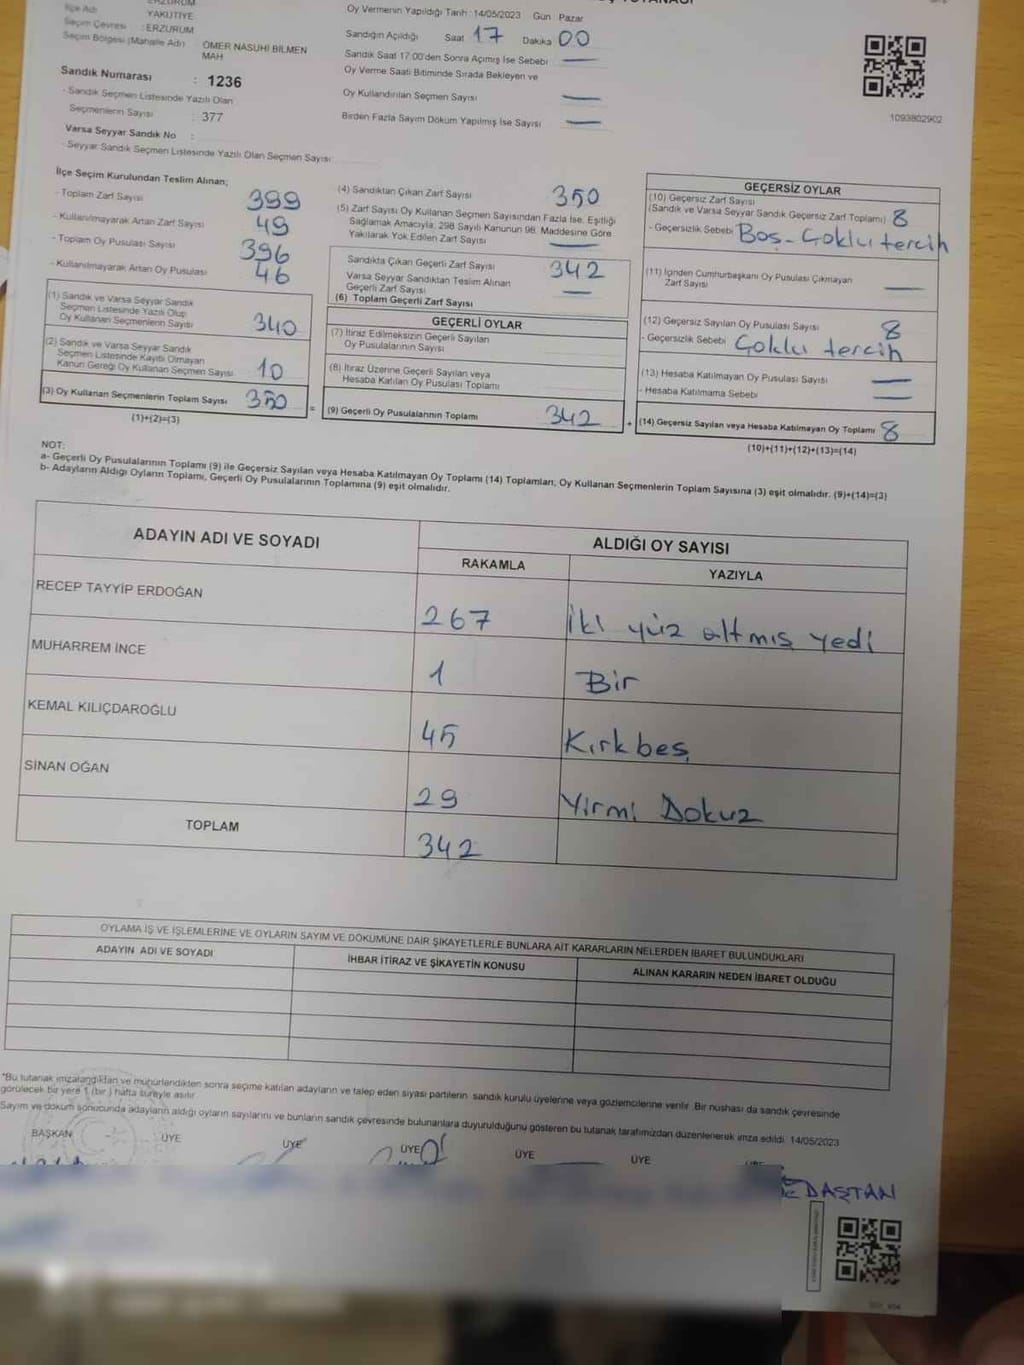 İlçe Adı
YAKUTİYE
Seçim Çevresi : ERZURUM
Seçim Bölgesi (Mahalle Adı)
ÖMER NASUHİ BİLMEN MAH
Sandık Numarası : 1236
- Sandık Seçmen Listesinde Yazılı Olan
Seçmenlerin Sayısı : 377
Varsa Seyyar Sandık No :
- Seyyar Sandık Seçmen Listesinde Yazılı Olan Seçmen Sayısı:
Oy Vermenin Yapıldığı Tarih : 14/05/2023 Gün Pazar
Sandığın Açıldığı Saat 17 Dakika 00
Sandık Saat 17.00'den Sonra Açılmış İse Sebebi —
Oy Verme Saati Bitiminde Sırada Bekleyen ve
Oy Kullandırılan Seçmen Sayısı —
Birden Fazla Sayım Döküm Yapılmış İse Sayısı —
1093802902
İlçe Seçim Kurulundan Teslim Alınan;
- Toplam Zarf Sayısı 399
- Kullanılmayarak Artan Zarf Sayısı 49
- Toplam Oy Pusulası Sayısı 396
- Kullanılmayarak Artan Oy Pusulası 46
(1) Sandık ve Varsa Seyyar Sandık
Seçmen Listesinde Yazılı Olup
Oy Kullanan Seçmenlerin Sayısı 340
(2) Sandık ve Varsa Seyyar Sandık
Seçmen Listesinde Kayıtlı Olmayan
Kanun Gereği Oy Kullanan Seçmen Sayısı 10
(3) Oy Kullanan Seçmenlerin Toplam Sayısı 350
(1)+(2)=(3)
(4) Sandıktan Çıkan Zarf Sayısı 350
(5) Zarf Sayısı Oy Kullanan Seçmen Sayısından Fazla İse, Eşitliği
Sağlamak Amacıyla; 298 Sayılı Kanunun 98. Maddesine Göre
Yakılarak Yok Edilen Zarf Sayısı —
Sandıkta Çıkan Geçerli Zarf Sayısı 342
Varsa Seyyar Sandıktan Teslim Alınan
Geçerli Zarf Sayısı —
(6) Toplam Geçerli Zarf Sayısı
GEÇERLİ OYLAR
(7) İtiraz Edilmeksizin Geçerli Sayılan
Oy Pusulalarının Sayısı
(8) İtiraz Üzerine Geçerli Sayılan veya
Hesaba Katılan Oy Pusulası Toplamı
= (9) Geçerli Oy Pusulalarının Toplamı 342 +
GEÇERSİZ OYLAR
(10) Geçersiz Zarf Sayısı
(Sandık ve Varsa Seyyar Sandık Geçersiz Zarf Toplamı) 8
- Geçersizlik Sebebi Boş-Çoklu tercih
(11) İçinden Cumhurbaşkanı Oy Pusulası Çıkmayan
Zarf Sayısı —
(12) Geçersiz Sayılan Oy Pusulası Sayısı 8
- Geçersizlik Sebebi Çoklu tercih
(13) Hesaba Katılmayan Oy Pusulası Sayısı —
- Hesaba Katılmama Sebebi —
(14) Geçersiz Sayılan veya Hesaba Katılmayan Oy Toplamı 8
(10)+(11)+(12)+(13)=(14)
NOT:
a- Geçerli Oy Pusulalarının Toplamı (9) ile Geçersiz Sayılan veya Hesaba Katılmayan Oy Toplamı (14) Toplamları; Oy Kullanan Seçmenlerin Toplam Sayısına (3) eşit olmalıdır. (9)+(14)=(3)
b- Adayların Aldığı Oyların Toplamı, Geçerli Oy Pusulalarının Toplamına (9) eşit olmalıdır.
ADAYIN ADI VE SOYADI
ALDIĞI OY SAYISI
RAKAMLA YAZIYLA
RECEP TAYYİP ERDOĞAN 267 İki yüz altmış yedi
MUHARREM İNCE 1 Bir
KEMAL KILIÇDAROĞLU 45 Kırk beş
SİNAN OĞAN 29 Yirmi Dokuz
TOPLAM 342
OYLAMA İŞ VE İŞLEMLERİNE VE OYLARIN SAYIM VE DÖKÜMÜNE DAİR ŞİKAYETLERLE BUNLARA AİT KARARLARIN NELERDEN İBARET BULUNDUKLARI
ADAYIN ADI VE SOYADI İHBAR İTİRAZ VE ŞİKAYETİN KONUSU ALINAN KARARIN NEDEN İBARET OLDUĞU
*Bu tutanak imzalandıktan ve mühürlendikten sonra seçime katılan adayların ve talep eden siyasi partilerin sandık kurulu üyelerine veya gözlemcilerine verilir. Bir nüshası da sandık çevresinde
görülecek bir yere 1 (bir) hafta süreyle asılır.
Sayım ve döküm sonucunda adayların aldığı oyların sayılarını ve bunların sandık çevresinde bulunanlara duyurulduğunu gösteren bu tutanak tarafımızdan düzenlenerek imza edildi. 14/05/2023
BAŞKAN ÜYE ÜYE ÜYE ÜYE ÜYE
DAŞTAN